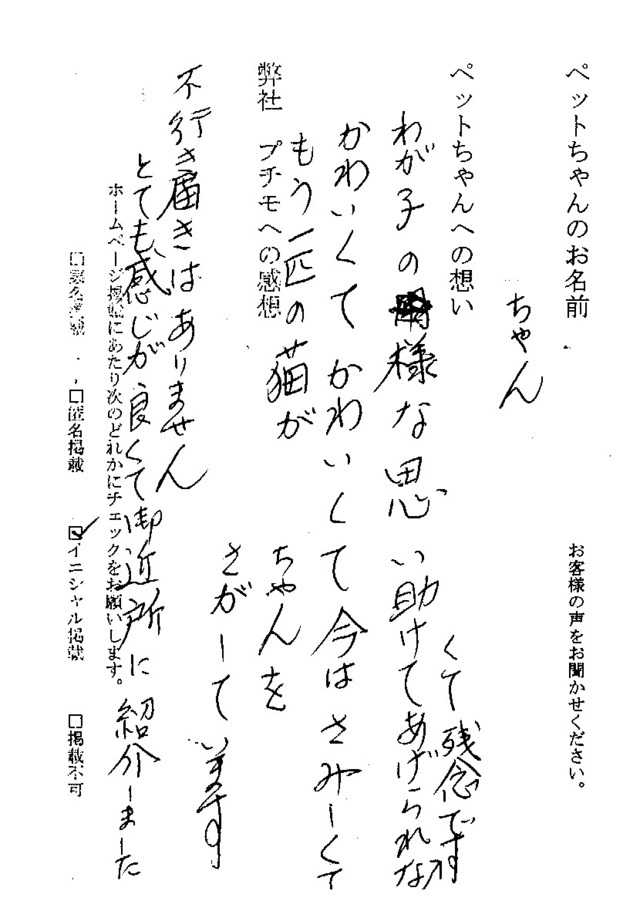 お客様の声をお聞かせください。
ペットちゃんのお名前
ちゃん
ペットちゃんへの想い
わが子の様な思い助けてあげられな
くて残念です
かわいくてかわいくて今はさみしくて
もう一匹の猫が
ちゃんを
さがしています
弊社 プチモへの感想
不行き届きはありません
とても感じが良くて御近所に紹介しました
ホームページ掲載にあたり次のどれかにチェックをお願いします。
□実名掲載 □匿名掲載 ☑イニシャル掲載 □掲載不可